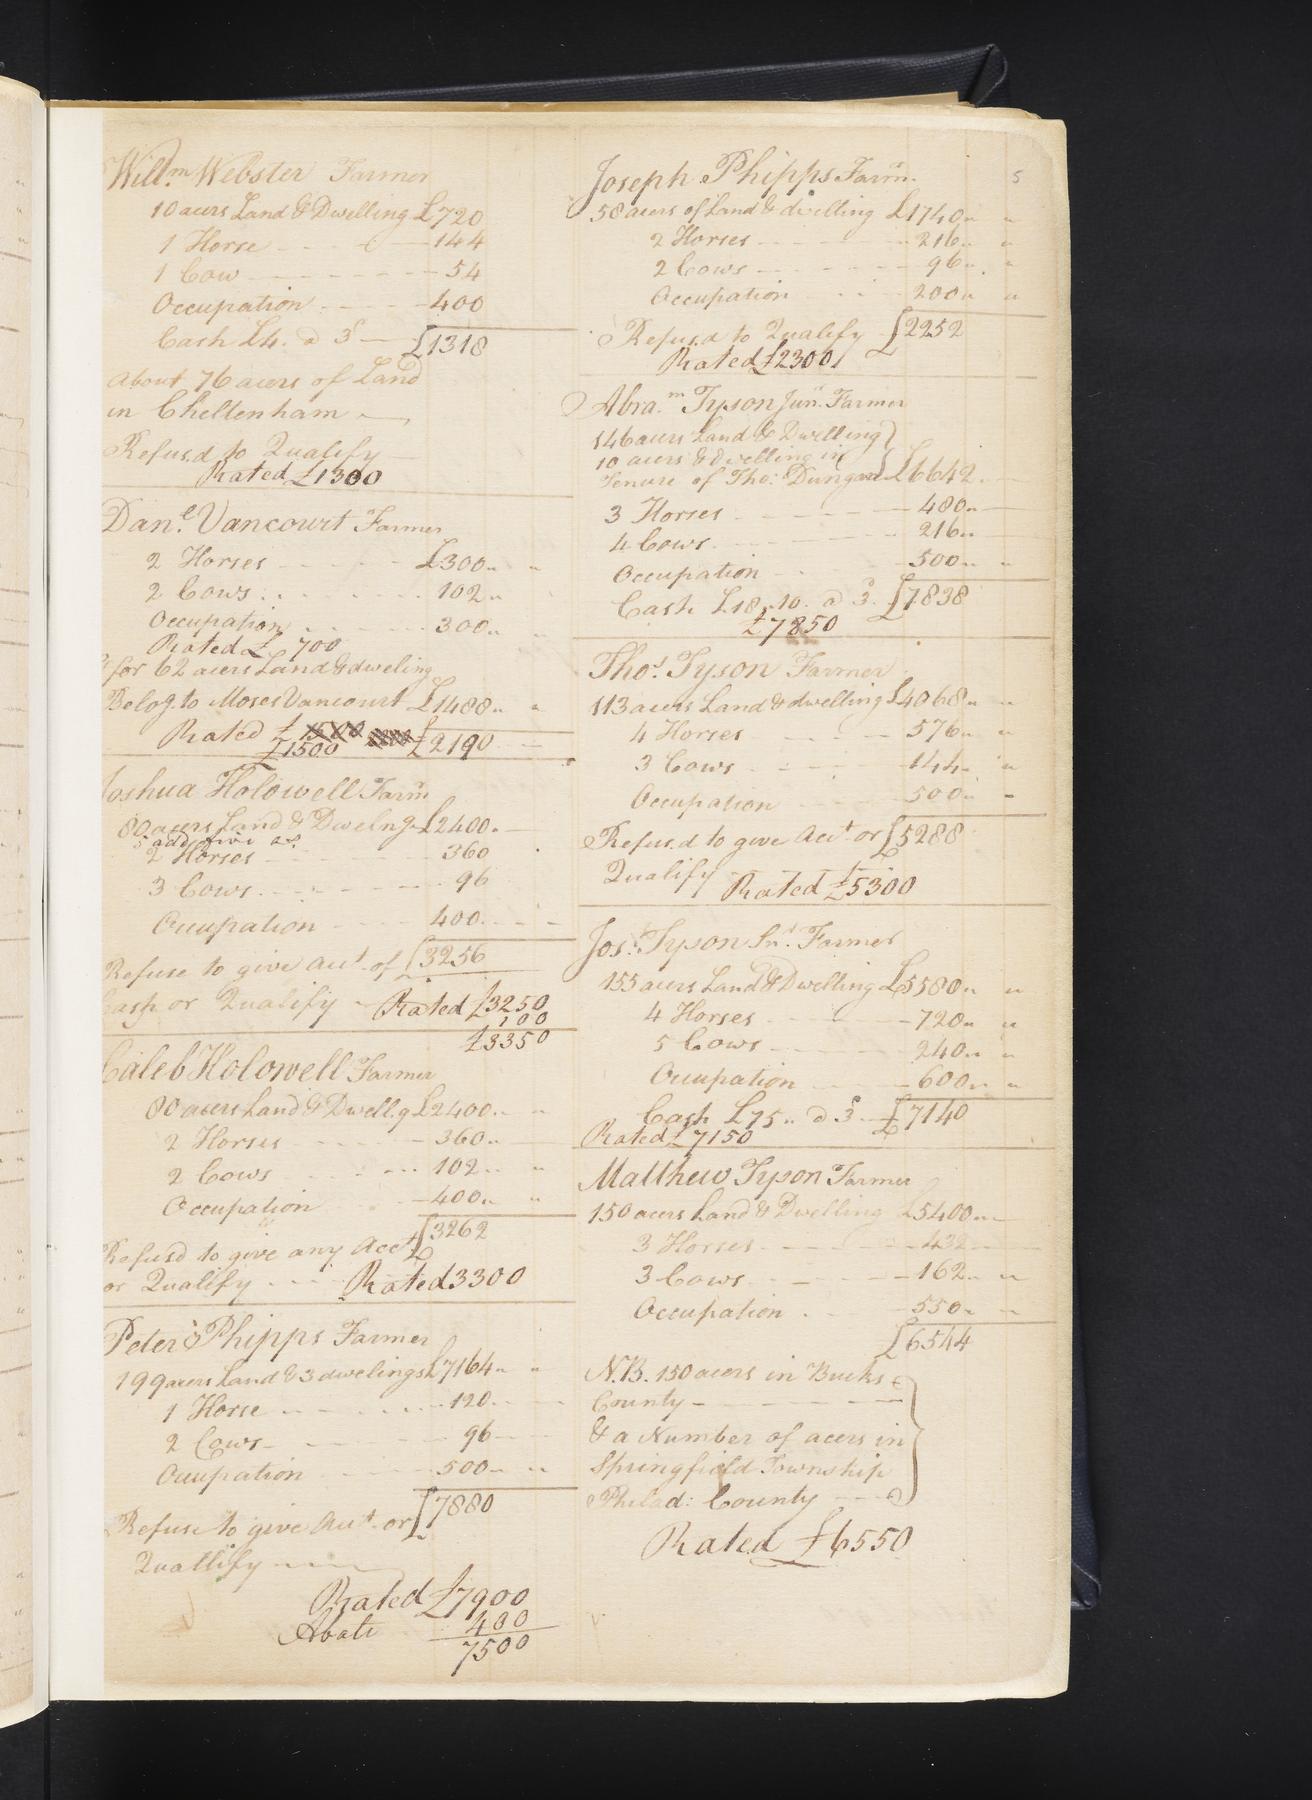 Will.m Webster Farmer
10 acers Land & Dwelling £720
1 Horse 144
1 Cow 54
Occupation 400
Cash £4. a 3 £1318
About 76 acers of Land
in Cheltenham
Refus.d to Qualify
Rated £1300
Dan.l Vancourt Farmer
2 Horses £300
2 Cows 102
Occupation 300
Rated £ 700
for 62 acers Land & dweling
Belog. to Moses Vancourt £1488
Rated £ 1500 £2190
£1500
Joshua Holowell Farm.r
80 acers Land & Dwelng £2400
5 add five
2 Horses 360
3 Cows 96
Occupation 400
Refuse to give acct. of £3256
Cash or Qualify Rated £3250
100
£3350
Caleb Holowell Farmer
80 acers Land & Dwell.g £2400
2 Horses 360
2 Cows 102
Occupation 400
Refusd to give any Acct £3262
or Qualify Rated 3300
Peter Phipps Farmer
199 acers Land & 3 dwelings £7164
1 Horse 120
2 Cows 96
Occupation 500
Refuse to give Acct. or £7880
Quallify
Rated £7900
Abate 400
7500
5
Joseph Phipps Farm.r
58 acers of Land & dwelling £1740
2 Horses 216
2 Cows 96
Occupation 200
Refus.d to Qualify £2252
Rated £2300
Abra.m Tyson Jun.r Farmer
146 acers Land & Dwelling
10 acers & dwelling in
Tenure of Tho: Dungan £6642
3 Horses 480
4 Cows 216
Occupation 500
Cash £18.10. a 3. £7838
£7850
Tho.s Tyson Farmer
113 acers Land & dwelling £4068
4 Horses 576
3 Cows 144
Occupation 500
Refus.d to give Acct or £5288
Qualify Rated £5300
Jos. Tyson Sn.r Farmer
155 acers Land & Dwelling £5580
4 Horses 720
5 Cows 240
Occupation 600
Cash £75 a 3 £7140
Rated £7150
Matthew Tyson Farmer
150 acers Land & Dwelling £5400
3 Horses 432
3 Cows 162
Occupation 550
£6544
N.B. 150 acers in Bucks
County
& a Number of acers in
Springfield Township
Philad: County
Rated £6550